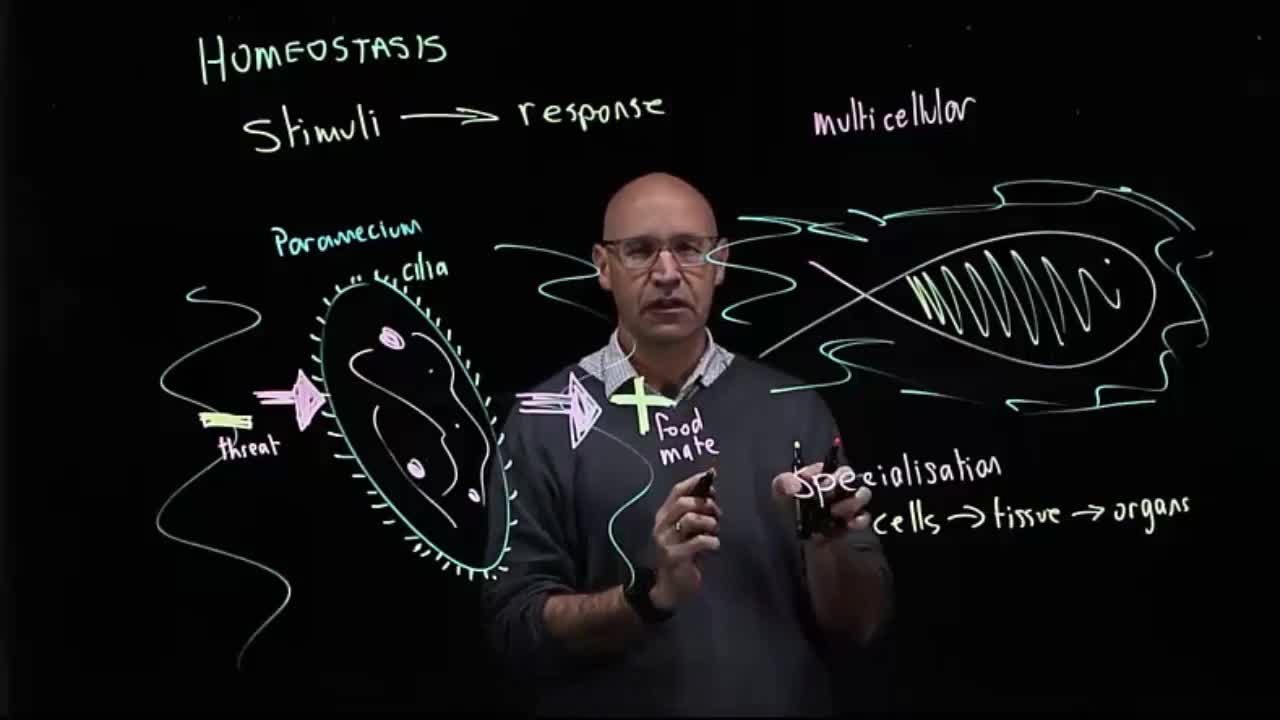 HOMEOSTASIS
Stimuli → response
multicellular
Paramecium
cilia
threat
+
food
mate
Specialisation
cells → tissue → organs